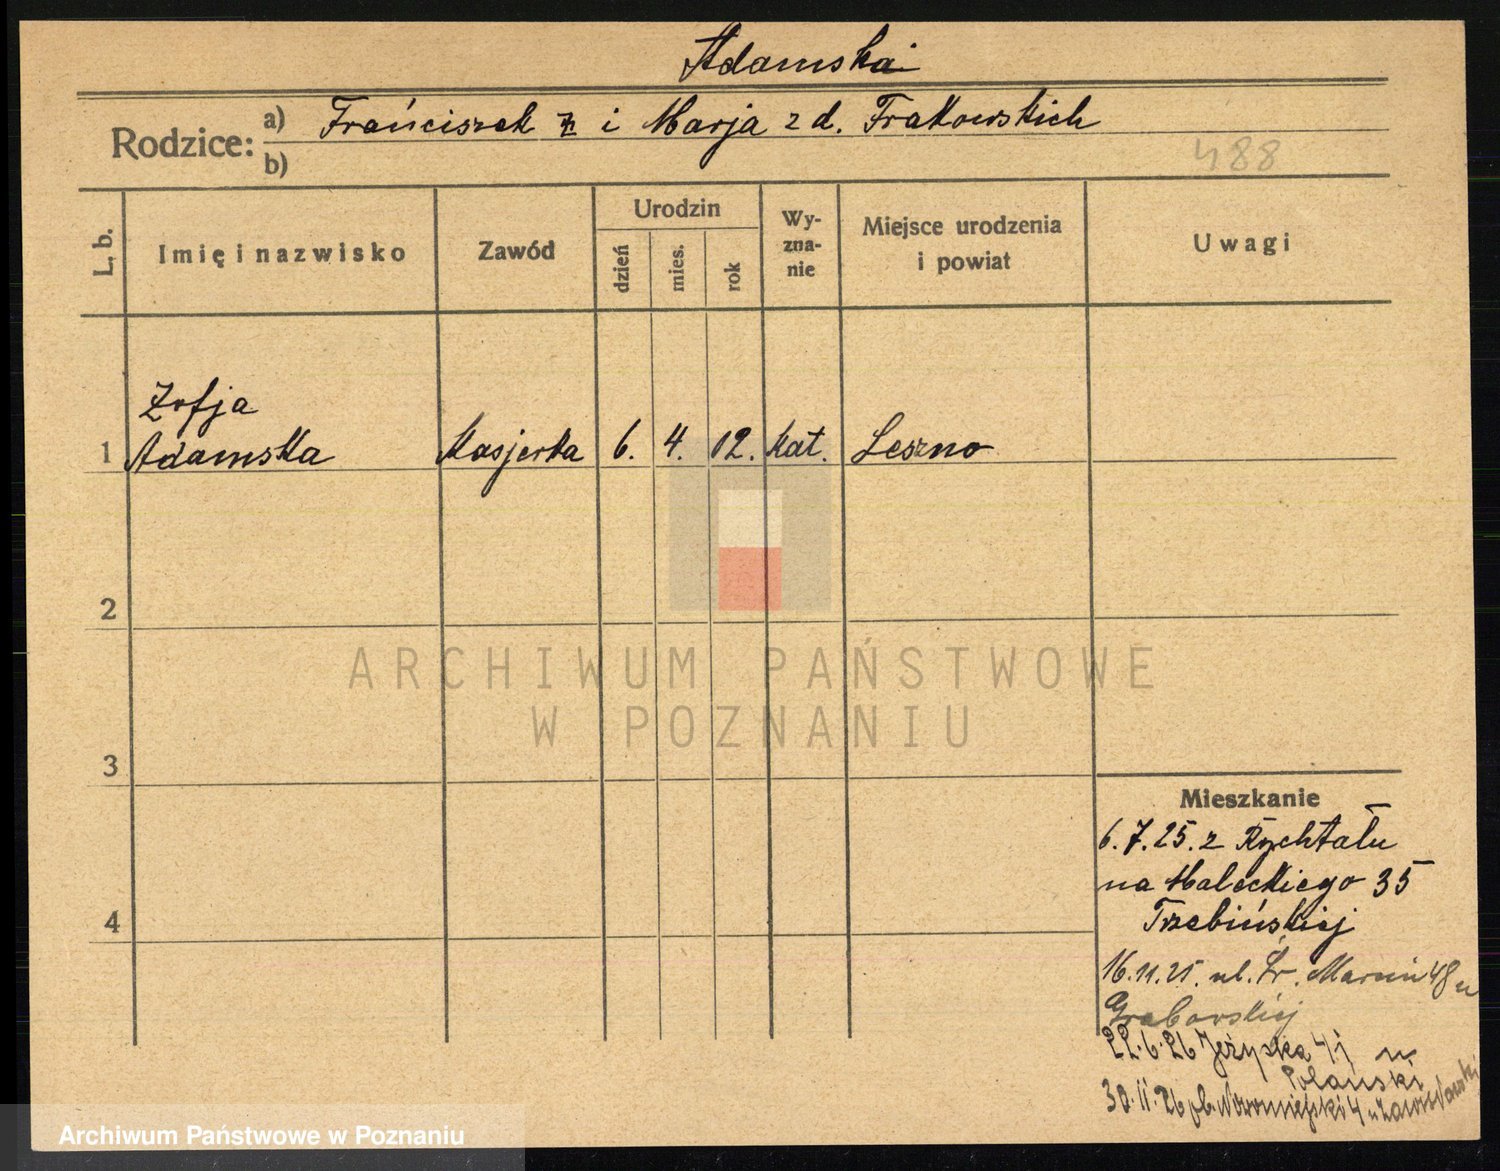 Adamska
Rodzice:
a) Franciszek i Marja z d. Frakowskich
b)
488
L. b.
Imię i nazwisko
Zawód
Urodzin
dzień
mies.
rok
Wy-
zna-
nie
Miejsce urodzenia
i powiat
Uwagi
Zofja
1 Adamska Kasjerka 6. 4. 12. kat. Leszno
2
ARCHIWUM PAŃSTWOWE
W POZNANIU
3
4
Mieszkanie
6.7.25. z Rychtału
na Małeckiego 35
Trzebińskiej
16.11.25. ul. Św. Marcin 48 u
Grabowskiej
22.6.26 Jeżycka 41 u
Polański
30.11.26 pl. Nowomiejski 4 u
Archiwum Państwowe w Poznaniu